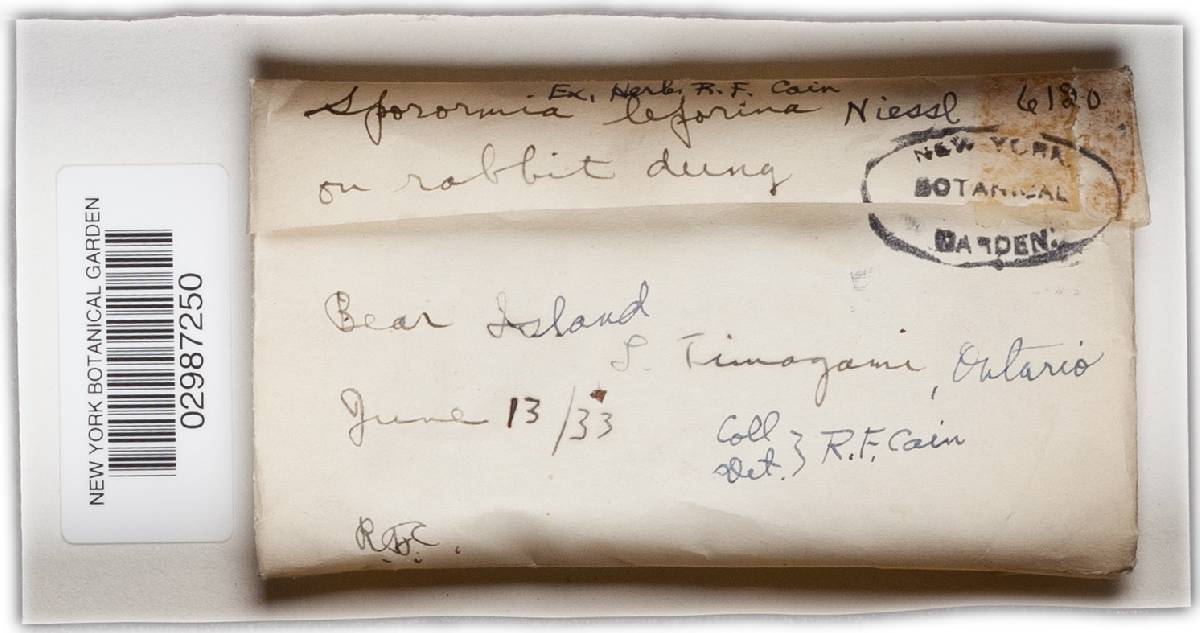 Ex. Herb. R. F. Cain
Sporormia leporina Niessl 6120
on rabbit dung
NEW YORK
BOTANICAL
GARDEN.
Bear Island
L. Timagami, Ontario
June 13/33
Coll
Det. } R.F. Cain
R.F.C.
NEW YORK BOTANICAL GARDEN
02987250